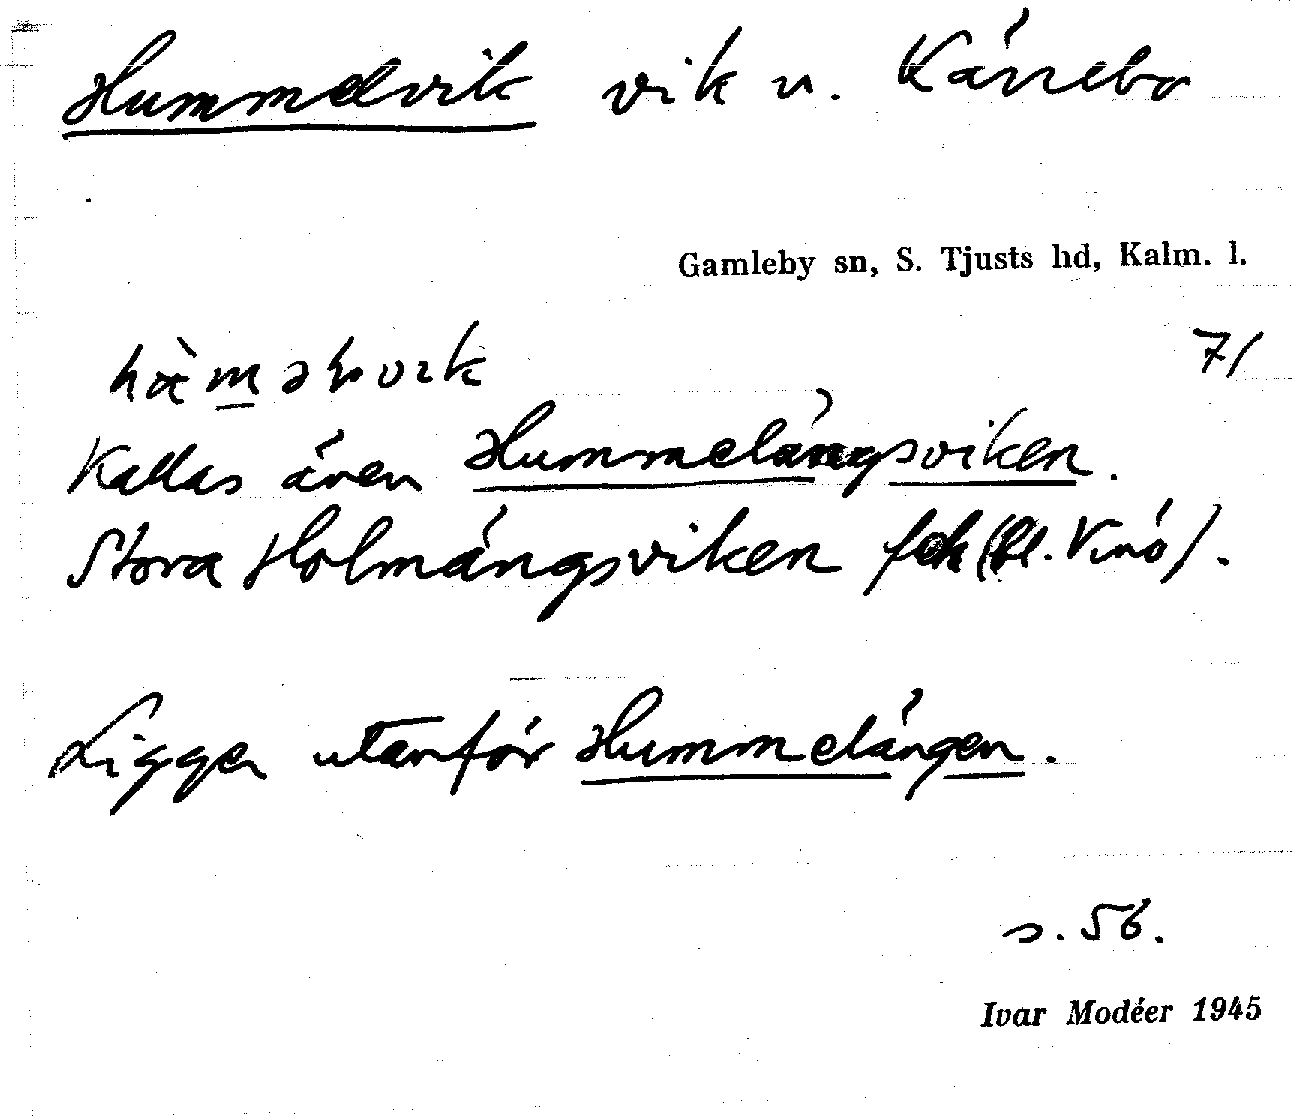 Hummelvik vik u. Kärrebo
Gamleby sn, S. Tjusts hd, Kalm. l.
71
Kallas även Hummelängsviken.
Stora Holmängsviken fek (fl. Vinö).
Ligger utanför Hummelängen.
s. 56.
Ivar Modéer 1945